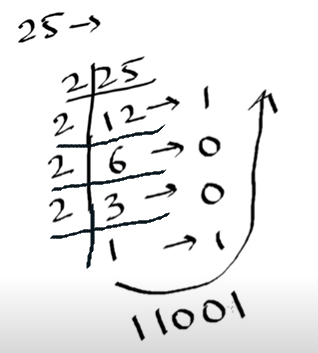 25→
2 25
2 12 → 1
2 6 → 0
2 3 → 0
1 → 1
11001